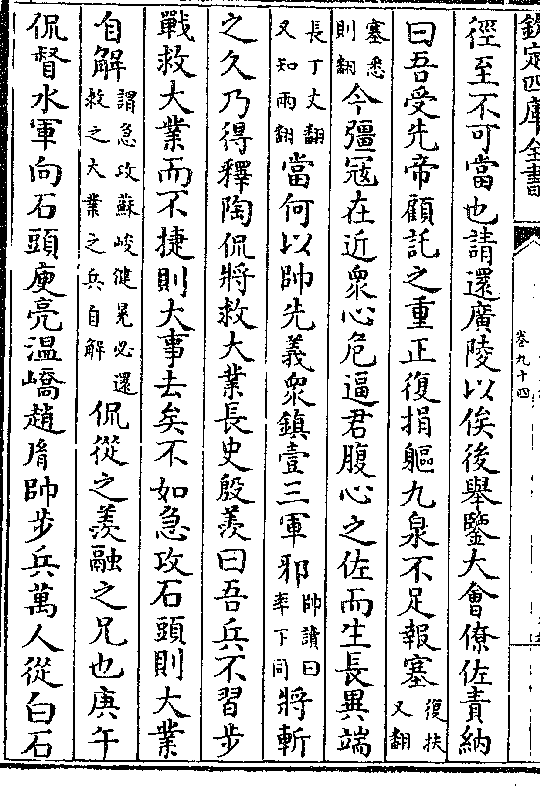 欽定四庫全書
卷九十四
徑至不可當也請還廣陵以俟後舉鑒大會僚佐責納
曰吾受先帝顧託之重正復捐軀九泉不足報塞復扶又翻
塞悉則翻今彊冦在近衆心危逼君腹心之佐而生長異端
長丁丈翻又知兩翻當何以帥先義衆鎮壹三軍邪帥讀曰率下同將斬
之久乃得釋陶侃將救大業長史殷羨曰吾兵不習步
戰救大業而不捷則大事去矣不如急攻石頭則大業
自解謂急攻蘇峻健晃必還救之大業之兵自解侃從之羨融之兄也庚午
侃督水軍向石頭庾亮溫嶠趙𦙍帥步兵萬人從白石